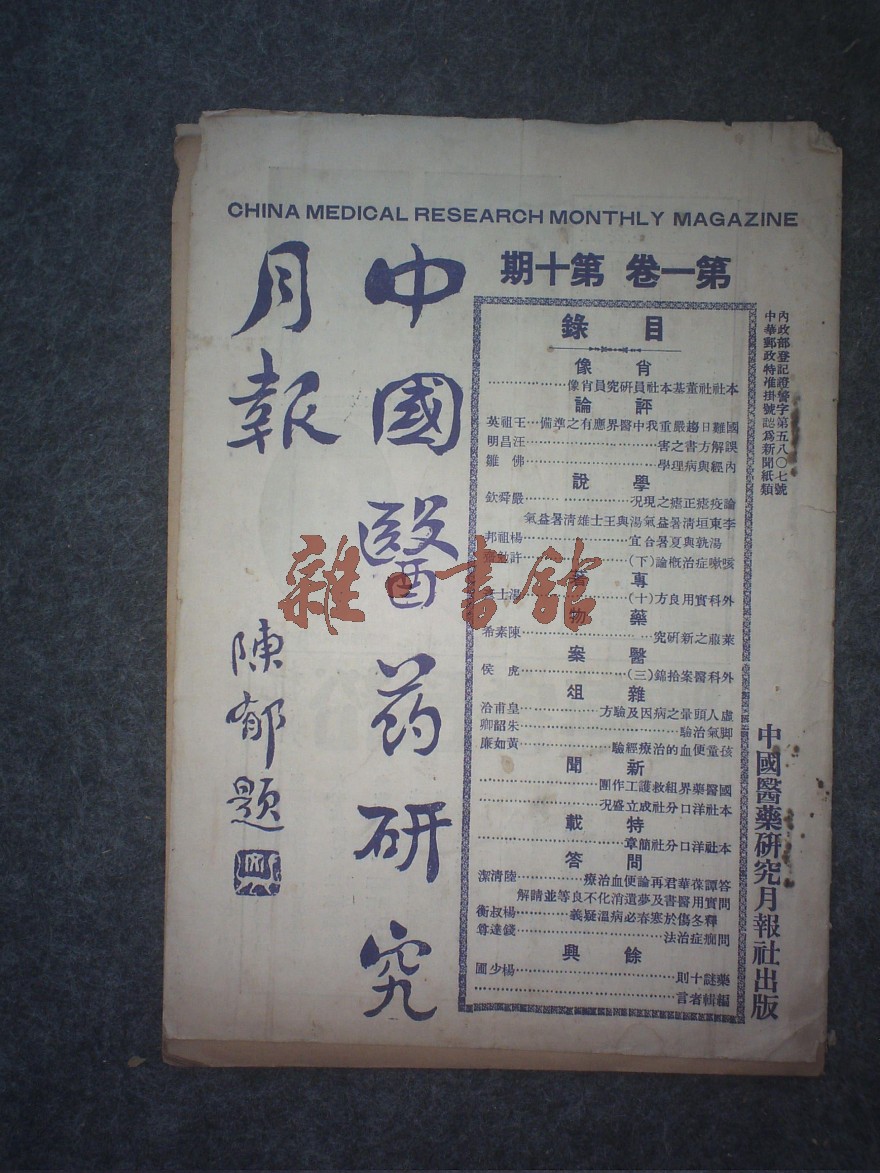 CHINA MEDICAL RESEARCH MONTHLY MAGAZINE
第一卷 第十期
內政部登記證警字第五八〇七號
中華郵政特准掛號認爲新聞紙類
目錄
肖像
本社社董基本社員研究員肖像
評論
國難日趨嚴重我中醫界應有之準備…王祖英
誤解方書之害…汪昌明
內經與病理學…佛雛
學說
論疫痧正痧之現况…嚴舜欽
李東垣清暑益氣湯與王士雄清暑益氣
湯孰與夏暑合宜…楊祖邦
咳嗽症治概論(下)…許
專著
外科實用良方(十)…湯士
藥物
萊菔之新研究…陳素希
醫案
外科醫案拾錦(三)…虎侯
雜俎
虛人頭暈之病因及驗方…皇甫洽
脚氣治驗…朱韶卿
孩童便血的治療經驗…黃如廉
新聞
國醫藥界組救護工作團
本社洋口分社成立盛况
特載
本社洋口分社簡章
問答
答譚葆華君再論便血治療…陸清潔
問實用醫書及夢遺消化不良等並請解
釋冬傷於寒春必病溫疑義…楊叔衡
問痼症治法…錢達尊
餘興
藥謎十則…楊少圃
編輯者言
中國醫藥研究月報社出版
中國醫药研究
月報
陳郁題
雜書館